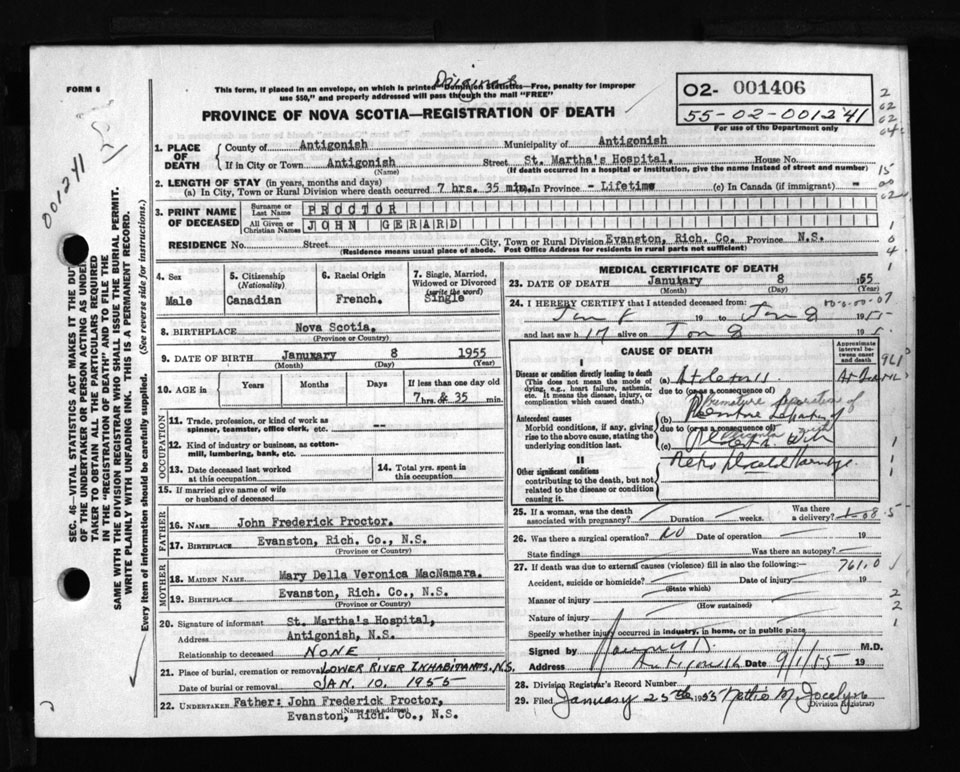 Original
FORM 6
This form, if placed in an envelope, on which is printed "Dominion Statistics—Free, penalty for improper
use $50," and properly addressed will pass through the mail "FREE"
02- 001406
55-02-001241
For use of the Department only
PROVINCE OF NOVA SCOTIA—REGISTRATION OF DEATH
001241
1. PLACE OF DEATH
County of Antigonish Municipality of Antigonish
If in City or Town Antigonish Street St. Martha's Hospital. House No.
(Name) (If death occurred in a hospital or institution, give the name instead of street and number)
2. LENGTH OF STAY (in years, months and days)
(a) In City, Town or Rural Division where death occurred 7 hrs. 35 min. In Province - Lifetime (c) In Canada (if immigrant) -
3. PRINT NAME OF DECEASED
Surname or Last Name PROCTOR
All Given or Christian Names JOHN GERARD
RESIDENCE No. Street City, Town or Rural Division Evanston, Rich. Co. Province N.S.
(Residence means usual place of abode. Post Office Address for residents in rural parts not sufficient)
4. Sex
Male
5. Citizenship
(Nationality)
Canadian
6. Racial Origin
French.
7. Single, Married,
Widowed or Divorced
(write the word)
Single
8. BIRTHPLACE Nova Scotia.
(Province or Country)
9. DATE OF BIRTH Januxary 8 1955
(Month) (Day) (Year)
10. AGE in Years Months Days If less than one day old
7 hrs. & 35 min.
OCCUPATION
11. Trade, profession, or kind of work as
spinner, teamster, office clerk, etc. --
12. Kind of industry or business, as cotton-
mill, lumbering, bank, etc.
13. Date deceased last worked
at this occupation
14. Total yrs. spent in
this occupation
15. If married give name of wife
or husband of deceased
FATHER
16. NAME John Frederick Proctor.
17. BIRTHPLACE Evanston, Rich. Co., N.S.
(Province or Country)
MOTHER
18. MAIDEN NAME Mary Della Veronica MacNamara.
19. BIRTHPLACE Evanston, Rich. Co., N.S.
(Province or Country)
20. Signature of informant St. Martha's Hospital,
Address Antigonish, N.S.
Relationship to deceased NONE
21. Place of burial, cremation or removal LOWER RIVER INHABITANTS, N.S.
Date of burial or removal JAN. 10, 1955
22. UNDERTAKER Father: John Frederick Proctor,
(Name and address)
Evanston, Rich. Co., N.S.
MEDICAL CERTIFICATE OF DEATH
23. DATE OF DEATH Januxary 8 1955
(Month) (Day) (Year)
24. I HEREBY CERTIFY that I attended deceased from:
Jan 8 19 to Jan 8 1955
and last saw h alive on Jan 8 195
CAUSE OF DEATH
Approximate interval between onset and death
I
Disease or condition directly leading to death
(This does not mean the mode of
dying, e.g., heart failure, asthenia,
etc. It means the disease, injury, or
complication which caused death.)
(a)
due to (or as a consequence of)
Premature separation of
Antecedent causes
Morbid conditions, if any, giving
rise to the above cause, stating the
underlying condition last.
(b)
due to (or as a consequence of)
Placenta with
(c)
II
Other significant conditions
contributing to the death, but not
related to the disease or condition
causing it.
25. If a woman, was the death
associated with pregnancy? Duration weeks. Was there
a delivery?
26. Was there a surgical operation? NO Date of operation 19
State findings Was there an autopsy?
27. If death was due to external causes (violence) fill in also the following:— 761.0
Accident, suicide or homicide? Date of injury 19
(State which)
Manner of injury
(How sustained)
Nature of injury
Specify whether injury occurred in industry, in home, or in public place
Signed by M.D.
Address Antigonish Date 9/1/55 19
28. Division Registrar's Record Number
29. Filed January 25th 1955 Nettie M. Jocelyn
(Division Registrar)
SEC. 46—VITAL STATISTICS ACT MAKES IT THE DUTY
OF THE UNDERTAKER OR PERSON ACTING AS UNDER-
TAKER TO OBTAIN ALL THE PARTICULARS REQUIRED
IN THE "REGISTRATION OF DEATH" AND TO FILE THE
SAME WITH THE DIVISION REGISTRAR WHO SHALL ISSUE THE BURIAL PERMIT.
WRITE PLAINLY WITH UNFADING INK. THIS IS A PERMANENT RECORD.
Every item of information should be carefully supplied. (See reverse side for instructions.)